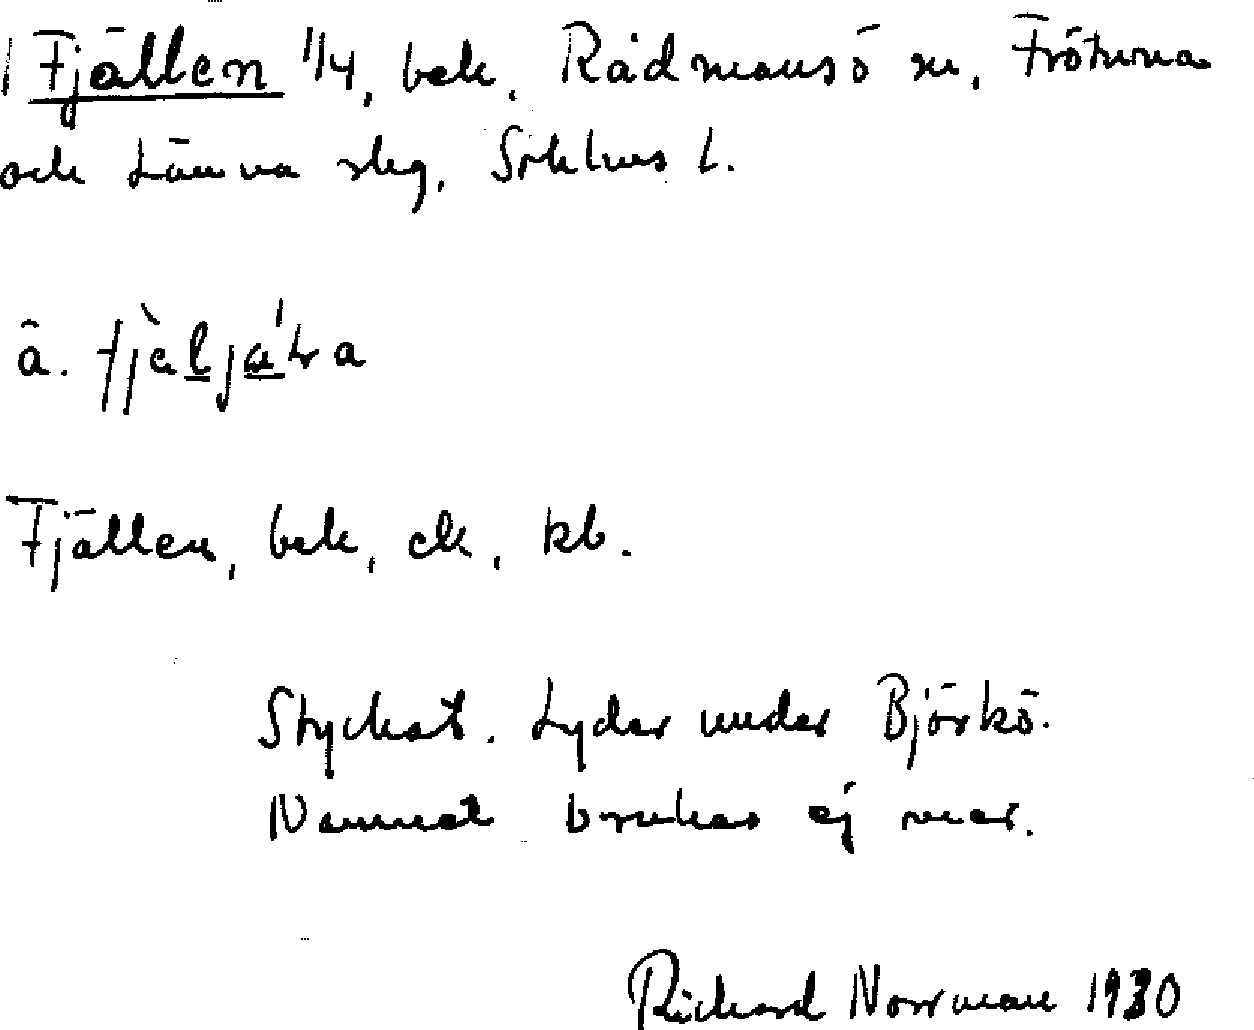 Fjällen 1/4, bek. Rådmansö sn, Frötuna
och Länna skg, Sthlms l.
â.
Fjällen, bek, ek, kb.
Styckat. Lyder under Björkö.
Namnet brukas ej mer.
Richard Norrman 1930